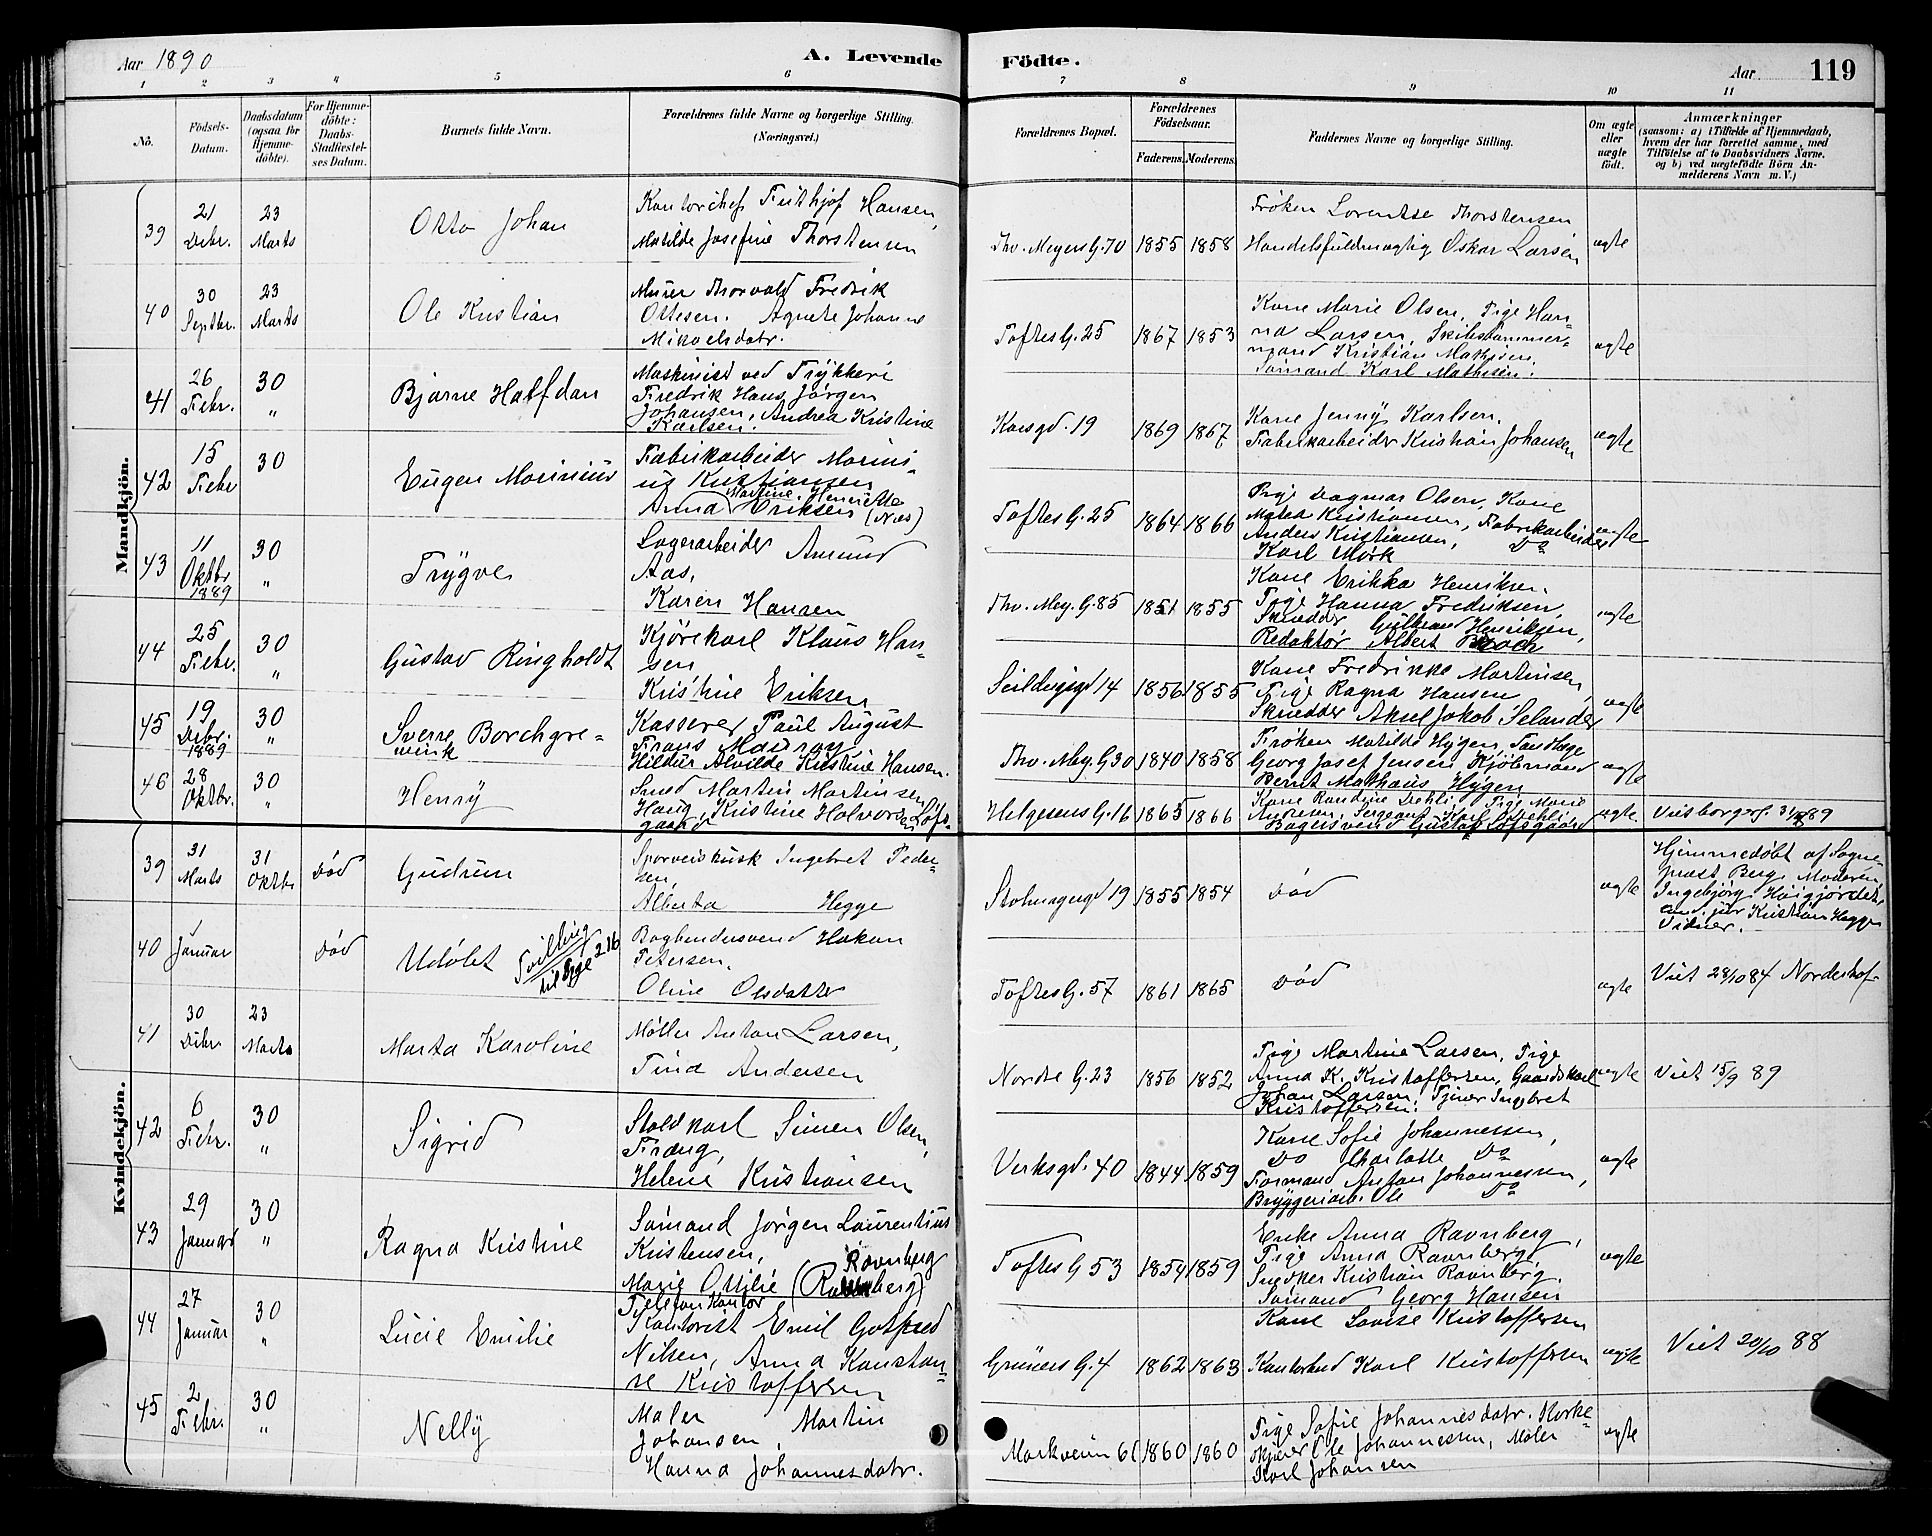 Aar 1890
A. Levende
Födte.
Aar
119
1 2 3 4 5 6 7 8 9 10 11
No.
Födsels-
Datum.
Daabsdatum
(ogsaa for
Hjemme-
döbte).
For Hjemme-
döbte:
Daabs-
Stadfæstel-
ses Datum.
Barnets fulde Navn.
Forældrenes fulde Navne og borgerlige Stilling.
(Næringsvei.)
Forældrenes Bopæl.
Forældrenes
Födselsaar.
Faderens. Moderens.
Faddernes Navne og borgerlige Stilling.
Om ægte
eller
uægte
födt.
Anmærkninger
(saasom: a) i Tilfælde af Hjemmedaab,
hvem der har forrettet samme, med
Tilföielse af to Daabsvidners Navne,
og b) ved uægtefödte Börn An-
melderens Navn m. V.)
Mandkjön.
39
21
Debr.
23
Marts
Otto Johan
Kontorchef Frithjof Hansen,
Matilde Josefine Thorstensen
Thv. Meyers G. 70
1855 1858
Frøken Lorentse Thorstensen
Handelsfuldmægtig Oskar Larsen
ægte
40
30
Septbr.
23
Marts
Ole Kristian
Murer Thorvald Fredrik
Ottesen. Agnete Johanne
Mikaelsdatr.
Toftes G. 25
1867 1853
Kone Marie Olsen, Pige Han-
na Larsen, Skibstømmer-
mand Kristian
Sømand Karl Mathisen.
ægte
41
26
Febr.
30
"
Bjarne Halfdan
Maskinist ved Trykkeri
Fredrik Hans Jørgen
Johansen, Andrea Kristine
Karlsen.
Korsgd. 19
1869 1867
Kone Jenny Karlsen.
Fabrikarbeider Kristian Johansen
ægte
42
15
Febr
30
Eugen Marinius
Fabrikarbeider Marini-
us Kristiansen
Martine Henriette
Anna Eriksen (Næs)
Toftes G. 25
1864 1866
Pige Dagmar Olsen, Kone
Kristiansen, Fabrikarbeider
Anders Kristiansen, Do
Karl Mørk
ægte
43
11
Oktbr
1889
30
"
Trygve
Lagerarbeider Amund
Aas,
Karen Hansen
Thv. Mey. G. 85
1851 1855
Kone Erikka Henriksen.
Pige Hanna Fredriksen,
Skrædder Gulbrand Henriksen,
Redaktør Albert Bloch
ægte
44
25
Febr.
30
"
Gustav Ringholdt
Kjørekarl Klaus Han-
sen
Kristine Eriksen
Seildugsgd 14
1856 1855
Kone Fredrikke Martinsen,
Pige Ragna Hansen
Skrædder Aksel Jakob Selander
ægte
45
19
Debr.
1889
30
"
Sverre Borchgre-
vink
Kasserer Paul August
Frans
Hildur Alvilde Kristine Hansen.
Thv. Mey. G 30
1840 1858
Frøken Matilde Hygen, Tandlæge
Georg Josef Jensen Kjøbmand
Bernt Mathæus Hygen
ægte
46
28
Oktbr.
30
"
Henry
Smed Martin Martinsen
Haug, Kristine Halvorsen Løfs-
gaard
Helgesens G. 16
1865 1866
Kone Randine Dehli, Pige Marie
Andresen, Sergeant Karl Dehli
Bagersvend Gustav Løfsgaard
ægte
Viet borgerl. 31/8 89
Kvindekjön.
39
31
Marts
31
Oktbr
død
Gudrun
Sporveiskusk Ingebret Peder-
sen,
Alberta Hegge
Stolmagergd 19
1855 1854
død
ægte
Hjemmedøbt af Sogne-
præst Berg. Moderen
Ingebjørg
cand. jur Kristian Hegge
Vidner.
40
1
Januar
død
Udøbt
Tvilling
til Pige 216
Bogbindersvend Hakon
Petersen,
Oline Olsdatter
Toftes G. 57
1861 1865
død
ægte
Viet 28/10 84 Nordrehof
41
30
Debr.
23
Marts
Marta Karoline
Møller Anton Larsen,
Tina Andersen
Nordre G. 23
1856 1852
Pige Martine Larsen, Pige
Anna K. Kristoffersen, Gaardskarl
Johan Larsen, Tjener Ingebret
Kristoffersen.
ægte
Viet 15/9 89
42
6
Febr.
30
"
Sigrid
Staldkarl Simen Olsen
Træng,
Helene Kristiansen
Verksgd. 40
1844 1859
Kone Sofie Johannessen,
Do Charlotte Do
Formand Anton Johannessen,
Bryggeriarb. Ole Do
ægte
43
29
Januar
30
"
Ragna Kristine
Sømand Jørgen Laurentius
Kristensen,
Ravnberg
Marie Ottilie
Toftes G 53
1854 1859
Enke Anna Ravnberg,
Pige Anna Ravnberg,
Snedker Kristian Ravnberg.
Sømand Georg Hansen
ægte
44
27
Januar
30
"
Lucie Emilie
Telefon Kontor
Kontorist Emil Gotfred
Nilsen, Anna Konstan-
se Kristoffersen
Grüners G. 4
1862 1863
Kone Lovise Kristoffersen
Kontorbud Karl Kristoffersen
ægte
Viet 20/10 88
45
2
Febr.
30
"
Nelly
Maler Martin
Johansen,
Hanna Johannesdatr.
Markveien 61
1860 1860
Pige Sofie Johannesdatr. Korke-
skjærer Ole Johannessen, Maler
Karl Johansen
ægte